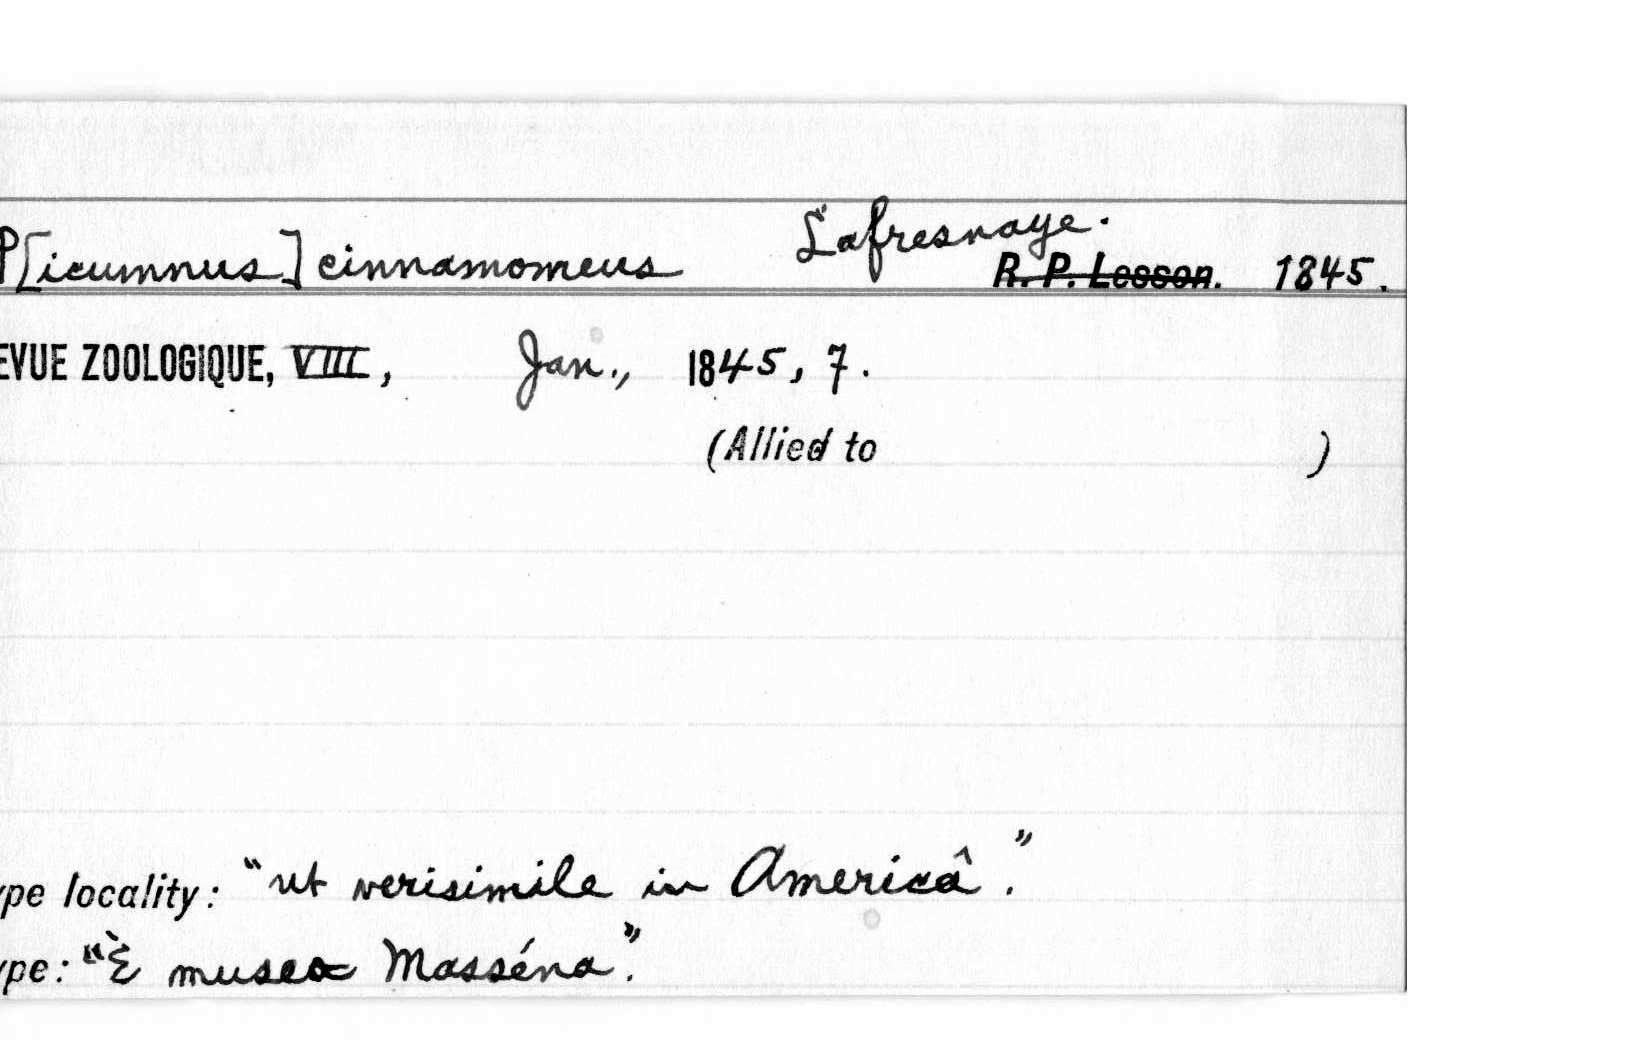 P[icumnus] cinnamomeus Lafresnaye.
R. P. Lesson. 1845.
EVUE ZOOLOGIQUE, VIII, Jan., 1845, 7.
(Allied to )
ype locality: "ut verisimile in Americâ."
ype: "È museo Masséna".